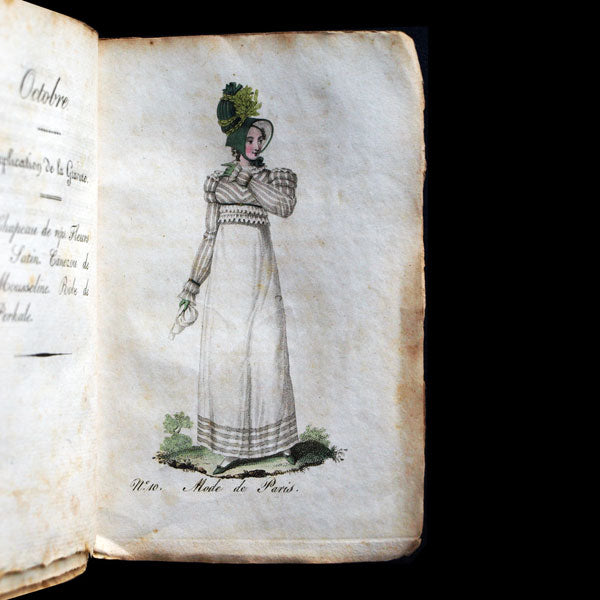 Octobre.
de la
Chapeau de Fleurs
Satin. Canezou de
Mousseline. Robe de
Perkale.
N.º 10. Mode de Paris.